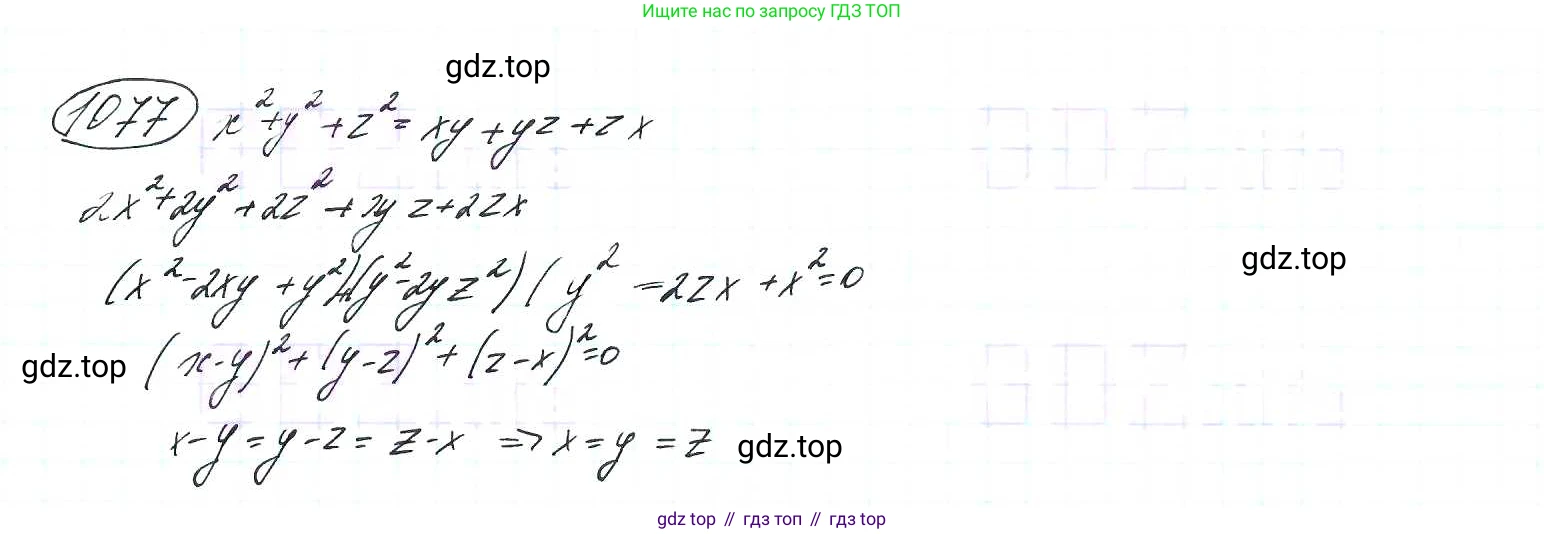 Ищите нас по запросу ГДЗ ТОП
gdz.top
1077 x² + y² + z² = xy + yz + zx
2x² + 2y² + 2z² + 2yz + 2zx
(x² - 2xy + y²)+(y² - 2yz²) ( y² = 2zx + x² = 0
gdz.top
gdz.top (x-y)² + (y-z)² + (z-x)² = 0
x-y = y-z = z-x => x = y = z gdz.top
gdz top // гдз топ // гдз top